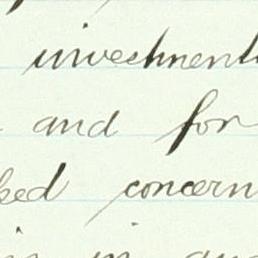 investment
and for
ked concern